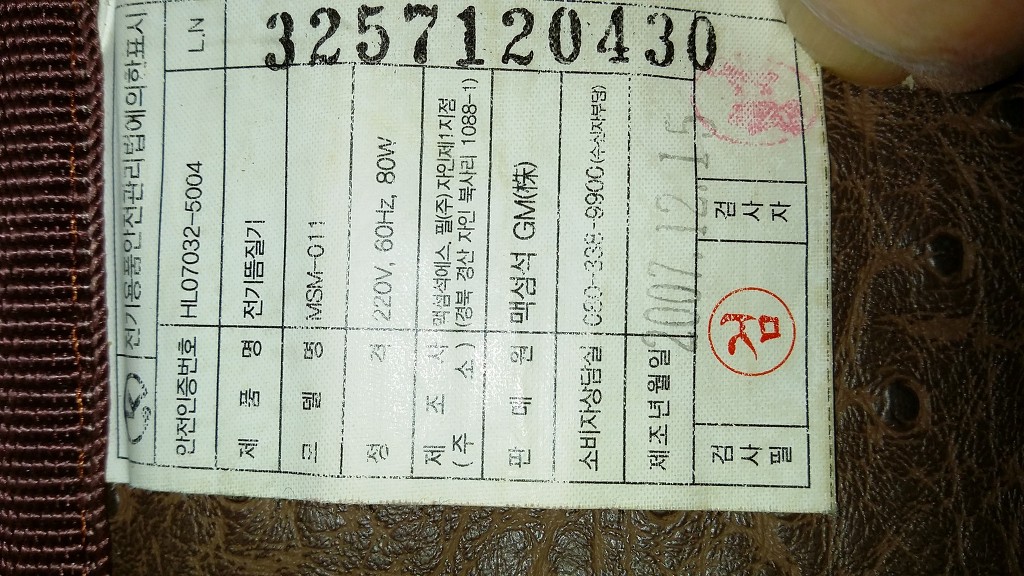 전기용품안전관리법에의한표시
L.N 3257120430
안전인증번호 HL07032-5004
제품명 전기뜸질기
모델명 MSM-011
성격 220V, 60Hz, 80W
제조사 맥섬석에스.필(주)자인제1지점
(주소) (경북 경산 자인 북사리 1088-1)
판매원 맥섬석 GM(株)
소비자상담실 080-338-9900(수신자부담)
제조년월일 2007.12.15
검사필 검 검사자